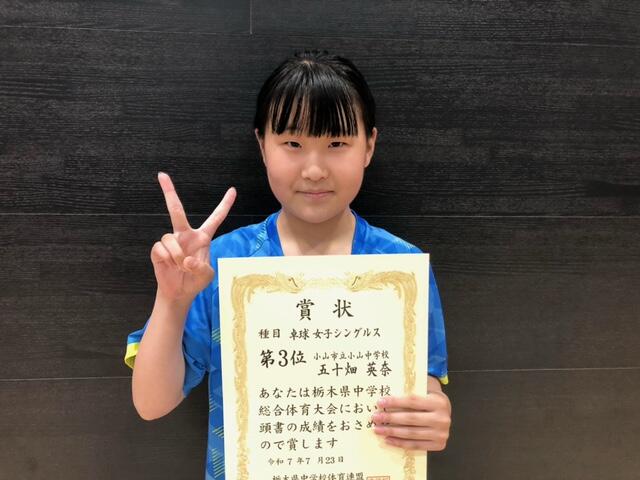 賞状
種目 卓球 女子シングルス
第3位 小山市立小山中学校
五十畑 英奈
あなたは栃木県中学校
総合体育大会において
頭書の成績をおさめ
ので賞します
令和7年7月23日
栃木県中学校体育連盟